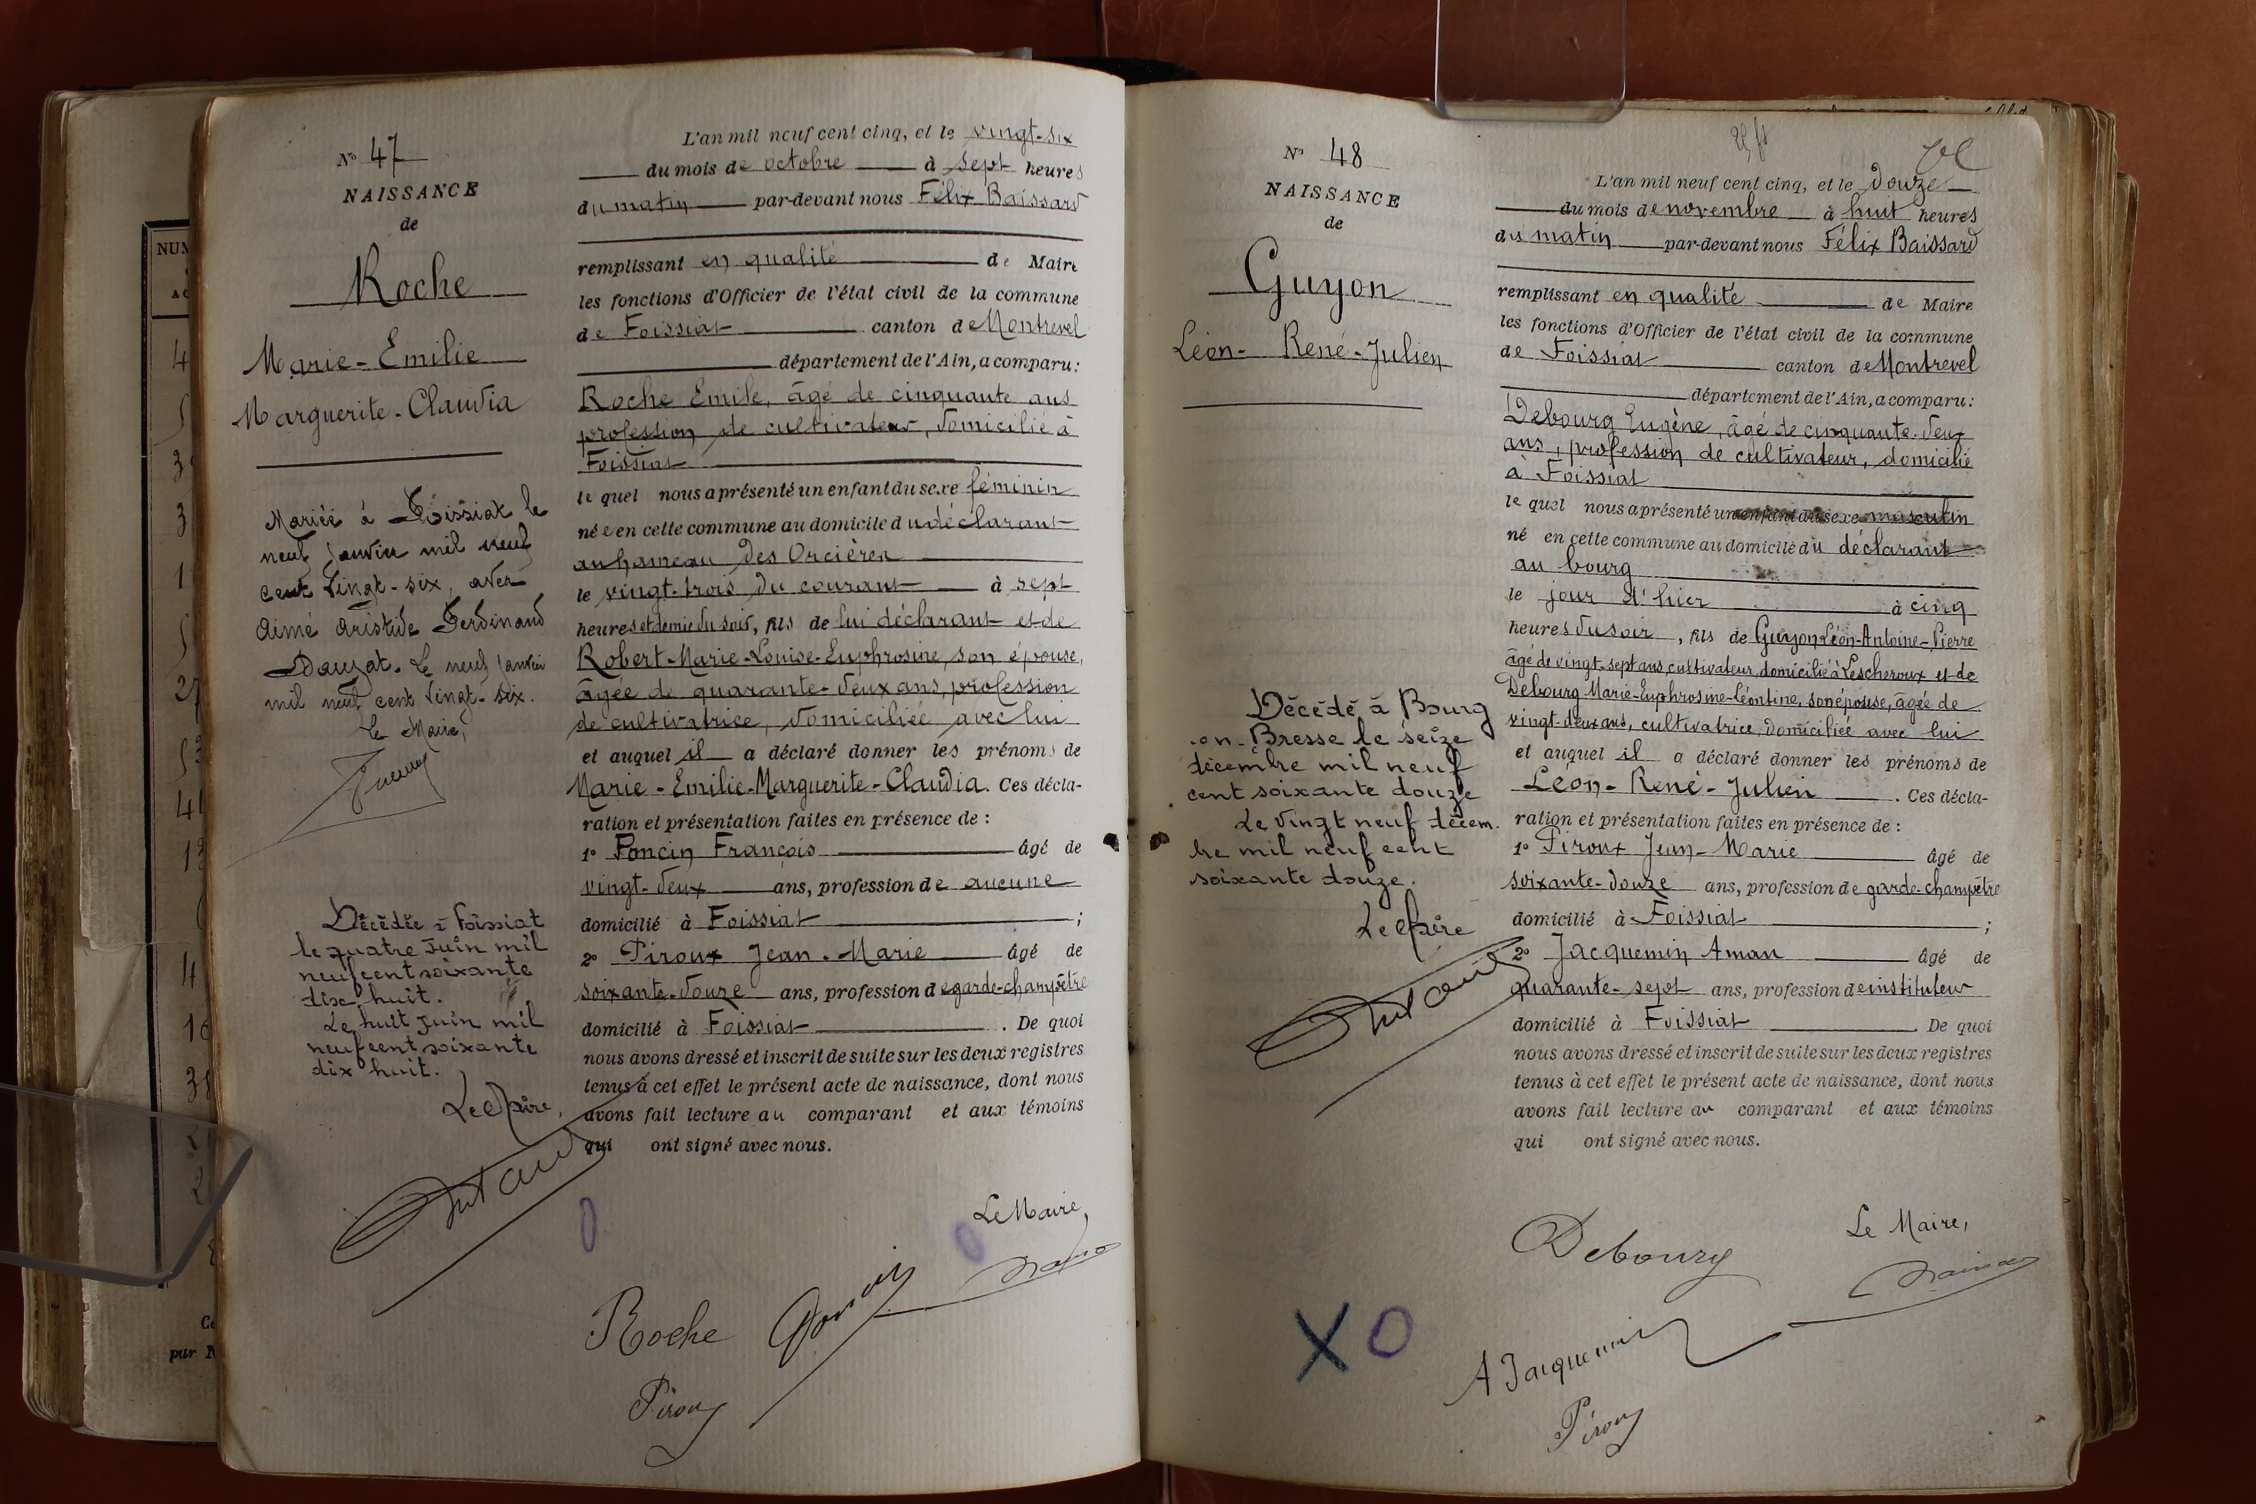 NUM
Nº 47
NAISSANCE
de
Roche
Marie-Emilie
Marguerite-Claudia
Mariée à Foissiat le
neuf janvier mil neuf
cent vingt-six, avec
Aimé Aristide Ferdinand
Dauzat. Le neuf janvier
mil neuf cent vingt-six.
Le Maire,
Décédée à Foissiat
le quatre Juin mil
neuf cent soixante
dix huit.
Le huit Juin mil
neuf cent soixante
dix huit.
Le Maire,
L'an mil neuf cent cinq, et le vingt-six
du mois de octobre à sept heures
du matin par-devant nous Félix Baissard
remplissant en qualité de Maire
les fonctions d'Officier de l'état civil de la commune
de Foissiat canton de Montrevel
département de l'Ain, a comparu:
Roche Emile, âgé de cinquante ans
profession de cultivateur, domicilié à
Foissiat
lequel nous a présenté un enfant du sexe féminin
née en cette commune au domicile du déclarant
au hameau des Orcières
le vingt-trois du courant à sept
heures et demie du soir, fils de lui déclarant et de
Robert-Marie-Louise-Euphrosine, son épouse,
âgée de quarante-deux ans, profession
de cultivatrice, domiciliée avec lui
et auquel il a déclaré donner les prénoms de
Marie-Emilie-Marguerite-Claudia. Ces décla-
ration et présentation faites en présence de :
1º Poncin François âgé de
vingt-deux ans, profession de aucune
domicilié à Foissiat ;
2º Piroux Jean-Marie âgé de
soixante-douze ans, profession de garde-champêtre
domicilié à Foissiat . De quoi
nous avons dressé et inscrit de suite sur les deux registres
tenus à cet effet le présent acte de naissance, dont nous
avons fait lecture au comparant et aux témoins
qui ont signé avec nous.
Le Maire,
Roche
Piroux
Nº 48
NAISSANCE
de
Guyon
Léon-René-Julien
Décédé à Bourg
en-Bresse le seize
décembre mil neuf
cent soixante douze
Le vingt neuf décem.
bre mil neuf cent
soixante douze.
Le Maire
L'an mil neuf cent cinq, et le douze
du mois de novembre à huit heures
du matin par-devant nous Félix Baissard
remplissant en qualité de Maire
les fonctions d'Officier de l'état civil de la commune
de Foissiat canton de Montrevel
département de l'Ain, a comparu:
Debourg Eugène, âgé de cinquante-deux
ans, profession de cultivateur, domicilié
à Foissiat
lequel nous a présenté un enfant du sexe masculin
né en cette commune au domicile du déclarant
au bourg
le jour d'hier à cinq
heures du soir, fils de Guyon Léon-Antoine-Pierre
âgé de vingt-sept ans, cultivateur, domicilié à Lescheroux et de
Debourg Marie-Euphrosine-Léontine, son épouse, âgée de
vingt-deux ans, cultivatrice, domiciliée avec lui
et auquel il a déclaré donner les prénoms de
Léon-René-Julien . Ces décla-
ration et présentation faites en présence de :
1º Piroux Jean-Marie âgé de
soixante-douze ans, profession de garde-champêtre
domicilié à Foissiat ;
2º Jacquemin Aman âgé de
quarante-sept ans, profession de instituteur
domicilié à Foissiat . De quoi
nous avons dressé et inscrit de suite sur les deux registres
tenus à cet effet le présent acte de naissance, dont nous
avons fait lecture au comparant et aux témoins
qui ont signé avec nous.
Le Maire,
Debourg
A Jacquemin
Piroux